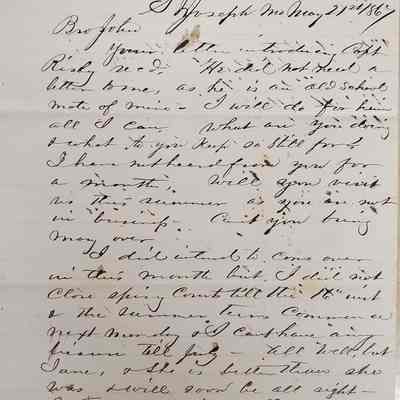 St Joseph Mo May 21st/867
Bro John
Your letter introducing Capt
Risby recd. He did not need a
letter to me, as he is an old School
mate of mine - I will do for him
all I can. What are you doing
& what do you keep so still for?
I have not heard from you for
a month. Will you visit
us this summer as you are not
in business. Cant you bring
over
I did intend to come over
in this month but I did not
Close Spring Court till the 16" inst
& the Summer term commences
next Monday & I cant have any
till July - All Well, but
Jane, & She is better & she
was & will soon be all right -